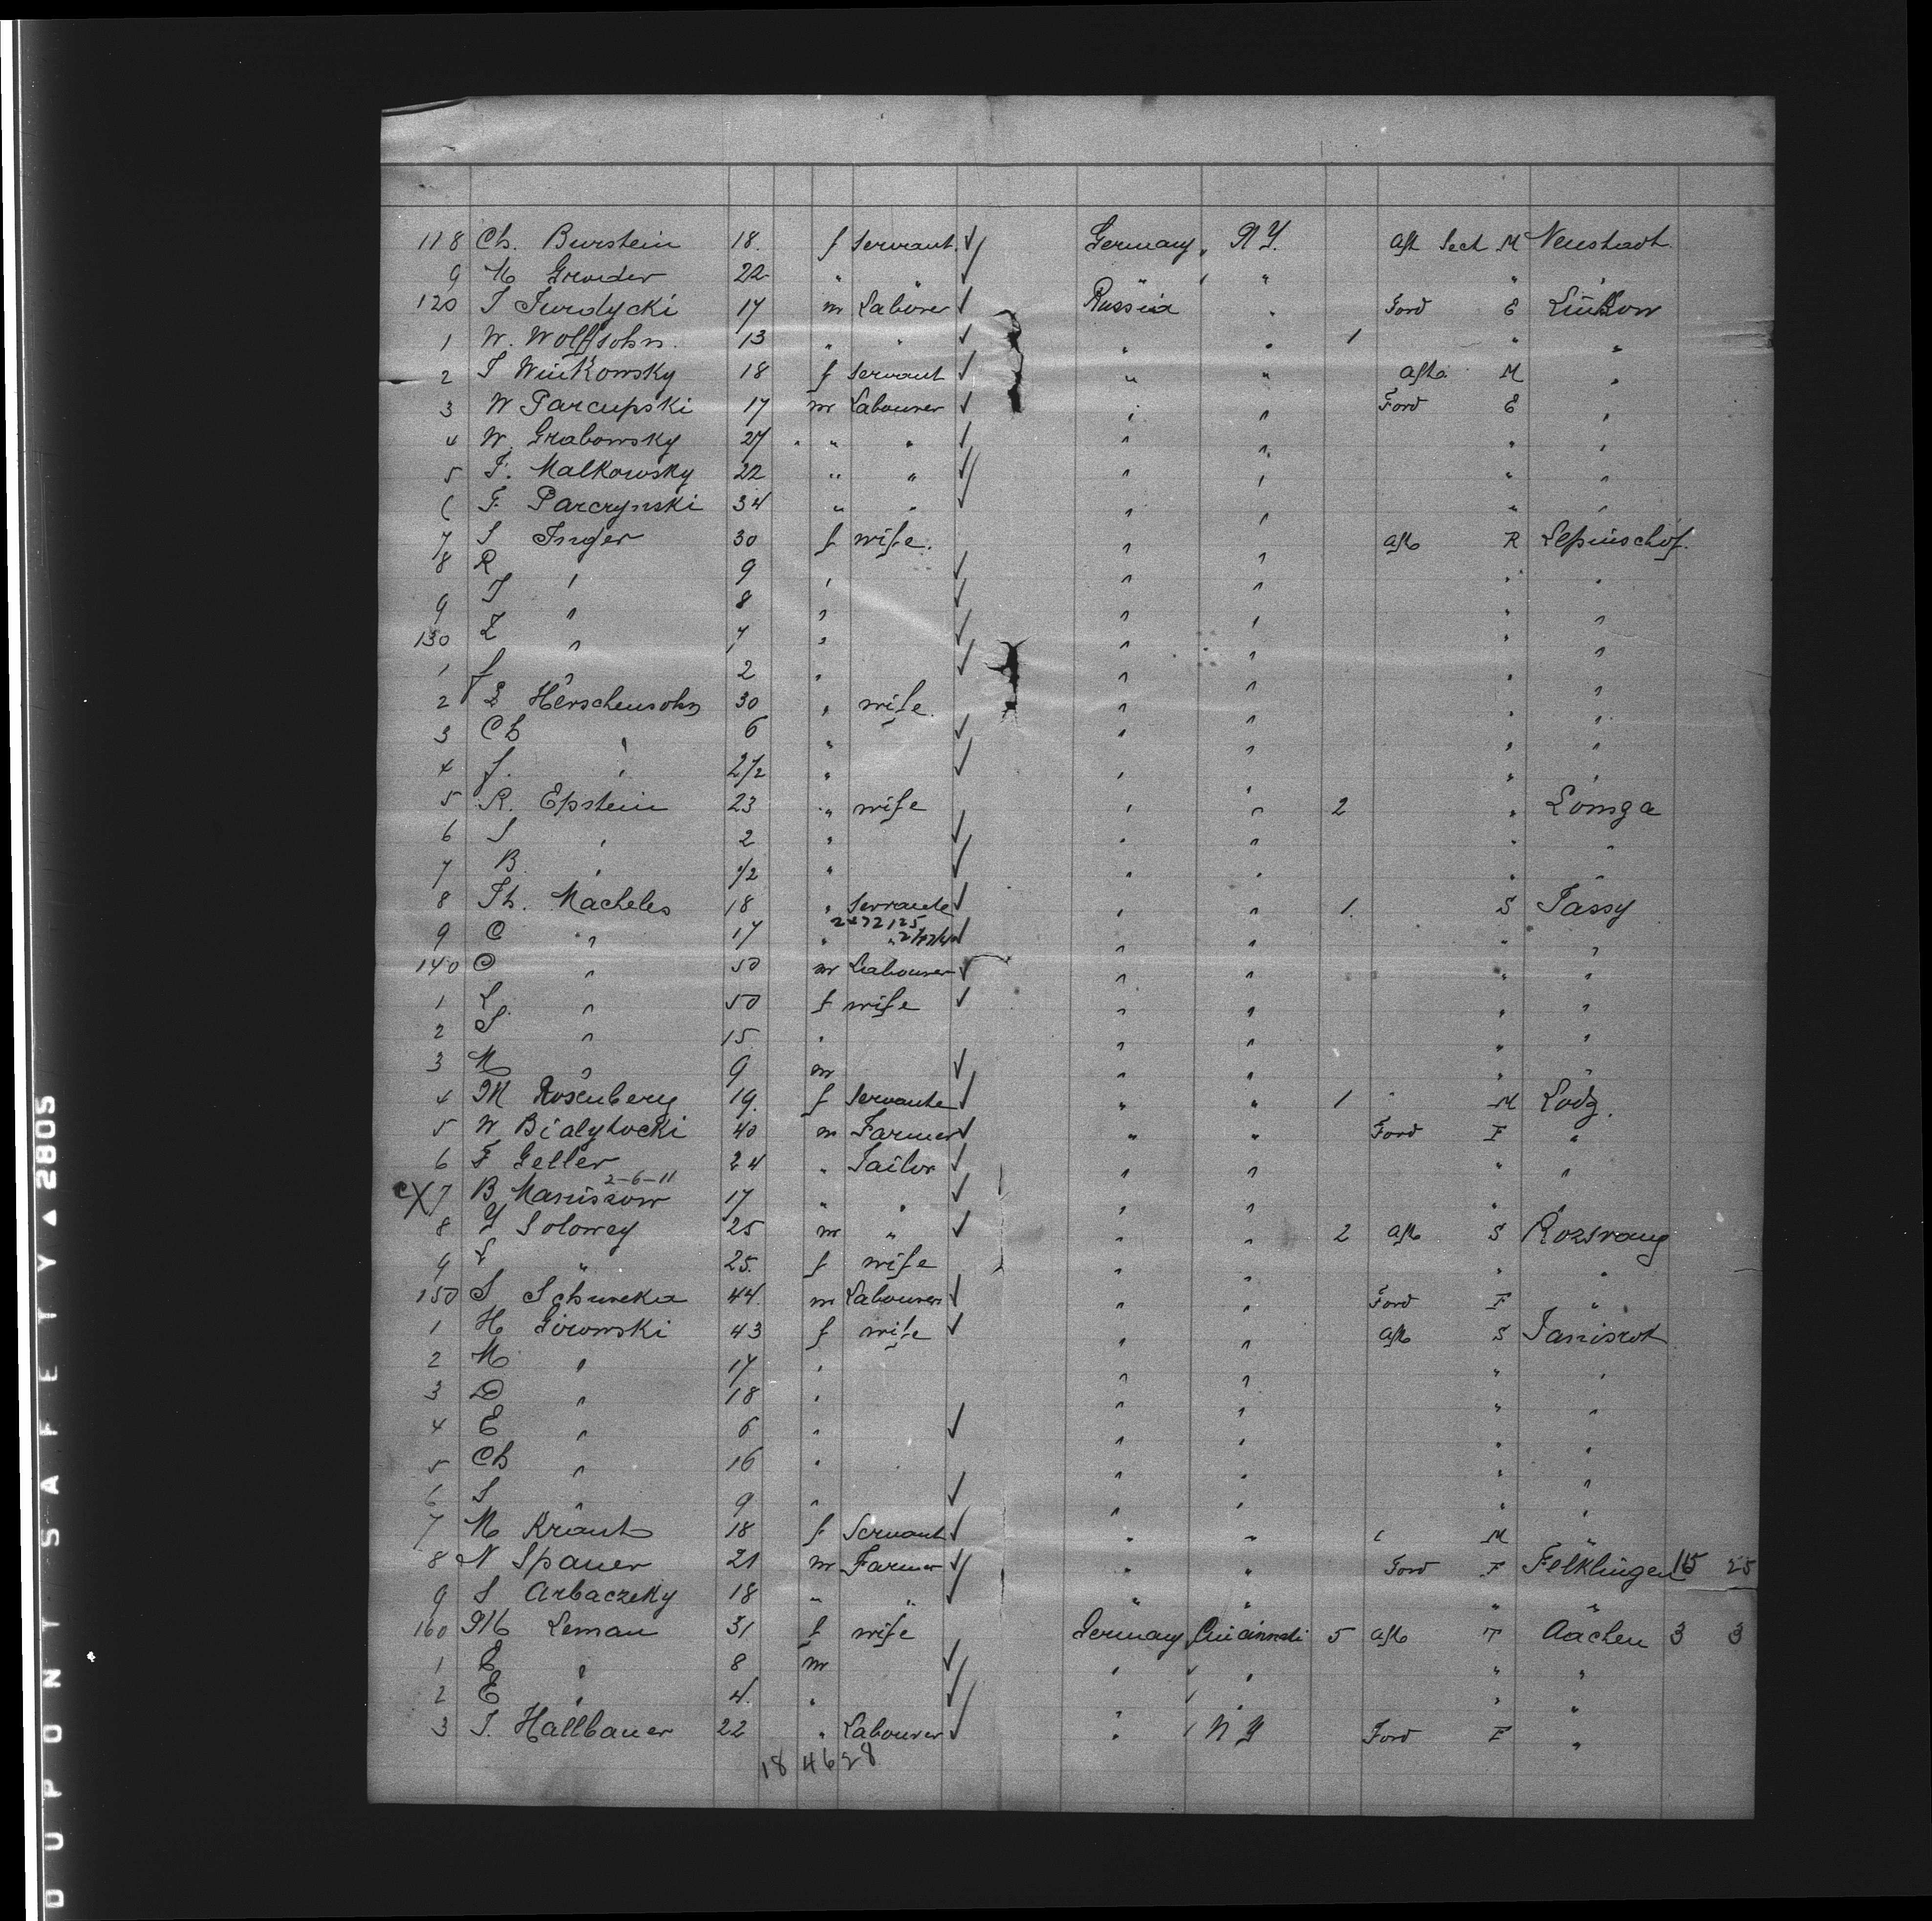 118 Ch. Burstein 18. f Servant Germany " N Y. Aft Sect M Neustadt
9 M Greeder 22 " " " " " "
120 J Jurdycki 17 m Labourer Russia " Ford E Linkow
1 W. Wolfsohn 13 " " " " 1 " "
2 J Winkowsky 18 f Servant " " Aft M "
3 W Parcupski 17 m Labourer " " Ford E "
4 W. Grabowsky 27 " " " " " "
5 F. Malkowsky 22 " " " " " "
6 F. Parcrynski 34 " " " " " "
7 S Inger 30 f wife. " " Aft R Lepinschof.
8 R " 9 " " " " "
9 J " 8 " " " " "
130 Z " 7 " " " " "
1 J " 2 " " " " "
2 L Herschensohn 30 " wife. " " " "
3 Ch " 6 " " " " "
4 J. " 2 1/2 " " " " "
5 R. Epstein 23 " wife " " 2 " Lomga
6 S " 2 " " " " "
7 B " 1/2 " " " " "
8 Th. Macheles 18 " Servante " " 1. S Jassy
9 C " 17 " " " " " "
140 O " 50 m Labourer " " " "
1 L. " 50 f wife " " " "
2 S " 15. " " " " "
3 M " 9 m " " " "
4 M Rosenberg 19. f Servante " " 1 " M Lodz.
5 W Bialytocki 40 m Farmer " " Ford F "
6 F Geller 24 " Tailor " " " "
2-6-11
X 7 B Maniszow 17 " " " " " "
8 Y Solowey 25 m " " " 2 Aft S Rozsvany
9 L " 25. f wife " " " "
150 S Schureka 44. m Labourer " " Ford F "
1 H Girowski 43 f wife " " Aft S Janiszok
2 M " 17 " " " " "
3 D " 18 " " " " "
4 E " 6 " " " " "
5 Ch " 16 " " " " "
6 S " 9 " " " " "
7 M Kraut 18 f Servant " " " M "
8 N Spauer 21 m Farmer " " Ford F Felklingen 15 25
9 S Arbaczeky 18 " " " " " "
160 M Leman 31 f wife Germany Cincinnati 5 Aft T Aachen 3 3
1 E " 8 m " " " "
2 E " 4. " " " " "
3 J. Hallbauer 22 " Labourer " N Y Ford F "
18 4628
DUPONT SAFETY ▲ 2805